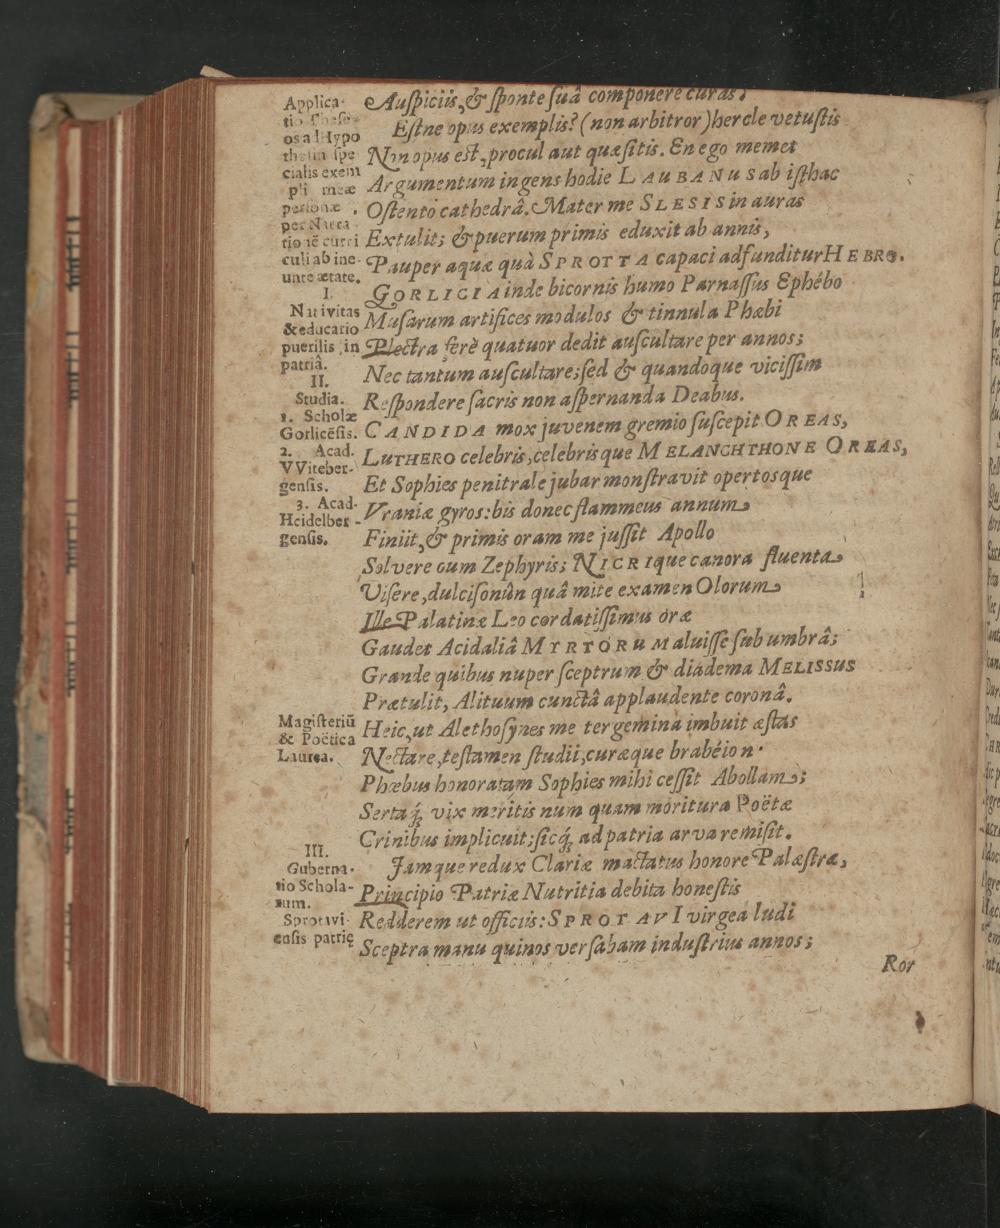 Applica-
tio These-
os ad Hypo
thesin spe
cialis exem
pli meæ
personæ,
per Narra-
tionē curri
culi ab ine-
unte ætate.
I.
Nativitas
& educatio
puerilis in
patriâ.
II.
Studia.
1. Scholæ
Gorlicēsis.
2. Acad.
VViteber-
gensis.
3. Acad.
Heidelber-
gensis.
Magisteriū
& Poëtica
Laurea.
III.
Guberna-
tio Schola-
rum.
Sprotavi-
ensis patrię
Auspiciis, & sponte suâ componere curas?
Estne opus exemplis? (non arbitror) hercle vetustis
Non opus est, procul aut quæsitis. En ego memet
Argumentum ingens hodie LAUBANUS ab isthac
Ostento cathedrâ. Mater me SLESIS in auras
Extulit; & puerum primis eduxit ab annis,
Pauper aquæ quà SPROTTA capaci adfunditur HEBRO.
GORLICIA inde bicornis humo Parnassus Ephébo
Musarum artifices modulos & tinnula Phœbi
Plectra ferè quatuor dedit auscultare per annos;
Nec tantum auscultare; sed & quandoque vicissim
Respondere sacris non aspernanda Deabus.
CANDIDA mox juvenem gremio suscepit OREAS,
LUTHERO celebris, celebrisque MELANCHTHONE OREAS,
Et Sophies penitrale jubar monstravit opertosque
Uraniæ gyros: bis donec flammeus annum
Finiit, & primis oram me jussit Apollo
Solvere cum Zephyris; NICRIque canora fluenta
Visere, dulcisonûn quâ mite examen Olorum
Ille Palatinæ Leo cordatissimus oræ
Gaudet Acidaliâ MYRTORUM aluisse sub umbrâ;
Grande quibus nuper sceptrum & diadema MELISSUS
Prætulit, Alituum cunctâ applaudente coronâ.
Heic, ut Alethosynes me tergemina imbuit æstas
Nectare, testamen studii, curæque brabéion.
Phœbus honoratam Sophies mihi cessit Abollam;
Sertaq́; vix meritis num quam moritura Poëtæ
Crinibus implicuit; sicq́; ad patria arva remisit.
Jamque redux Clariæ mactatus honore Palæstræ,
Principio Patriæ Nutritia debita honestis
Redderem ut officiis: SPROTAVI virgea ludi
Sceptra manu quinos versabam industrius annos;
Ror